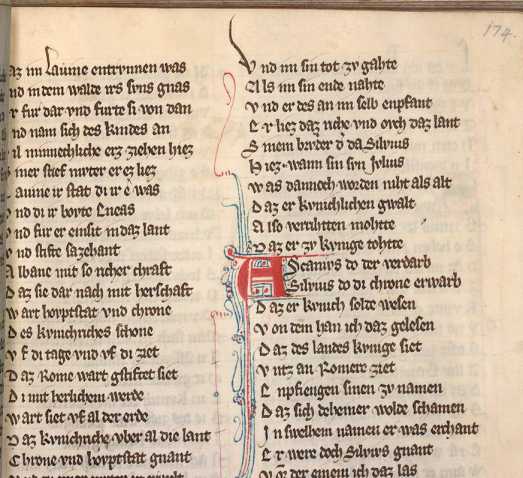 174.
az im Laume entrvnnen was
nd in dem walde irs svns gnas
r fur dar vnd furte si von dan
nd nam sich des kindes an
il minnechliche erz ziehen hiez
iner stief mvter er ez liez
aume ir stat di ir e was
nd di ir bovte Eneas
nd fur er einsit in daz lant
nd stifte sazehant
Albane mit so richer chraft
Daz sie dar nach mit herschaft
Wart hovptstat vnd chrone
Des kvnichriches schone
Vf di tage vnd vf di ziet
Daz Rome wart gstiftet siet
Di mit herlichem werde
Wart siet vf al der erde
Daz kvnichriche vber al die lant
Chrone vnd hovptstat gnant
Vnd im sin tot zv gahte
Als im sin ende nahte
Vnd er des an im selb enpfant
Er liez daz riche vnd ovch daz lant
Sinem brvder da Siluius
Hiez wann sin svn Jvlius
Was dannoch worden niht als alt
Daz er kvnichlichen gwalt
Also verrihten mohte
Daz er zv kvnige tohte
Ascanius do der verdarb
Silvius do di chrone erwarb
Daz er kvnich solde wesen
Von dem han ich daz gelesen
Daz des landes kvnige siet
Vntz an Romere ziet
Enpfiengen sinen zv namen
Daz sich deheiner wolde schamen
In swelhem namen er was erchant
Er were doch Siluius gnant
der einem ich daz las